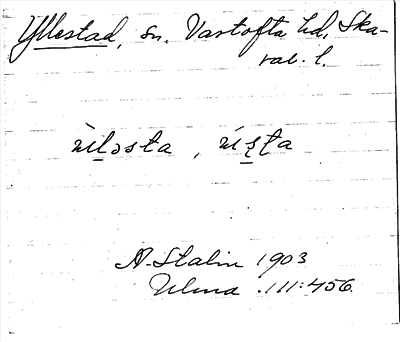 Yllestad, sn. Vartofta hd, Ska-
rab. l.
ùl̲əsta, ú
A. Stalin 1903
Ulma 111:456.